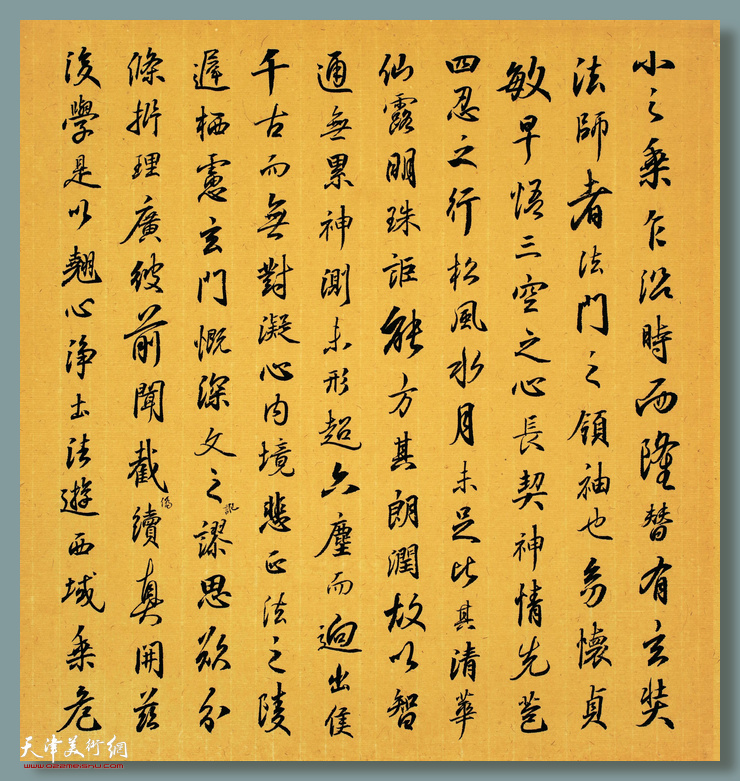 小之乘乍沿時而隆替有玄奘
法師者法門之領袖也幼懷貞
敏早悟三空之心長契神情先苞
四忍之行松風水月未足比其清華
仙露明珠詎能方其朗潤故以智
通無累神測未形超六塵而迥出隻
千古而無對凝心内境悲正法之陵
遲栖慮玄門慨深文之訛謬思欲分
條析理廣彼前聞截偽續真開茲
後學是以翹心淨土法遊西域乘危
天津美術網
www.022meishu.com